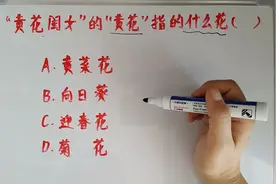 “黄花闺女”的“黄花”指的什么花( )
A. 黄菜花
B. 向日葵
C. 迎春花
D. 菊 花